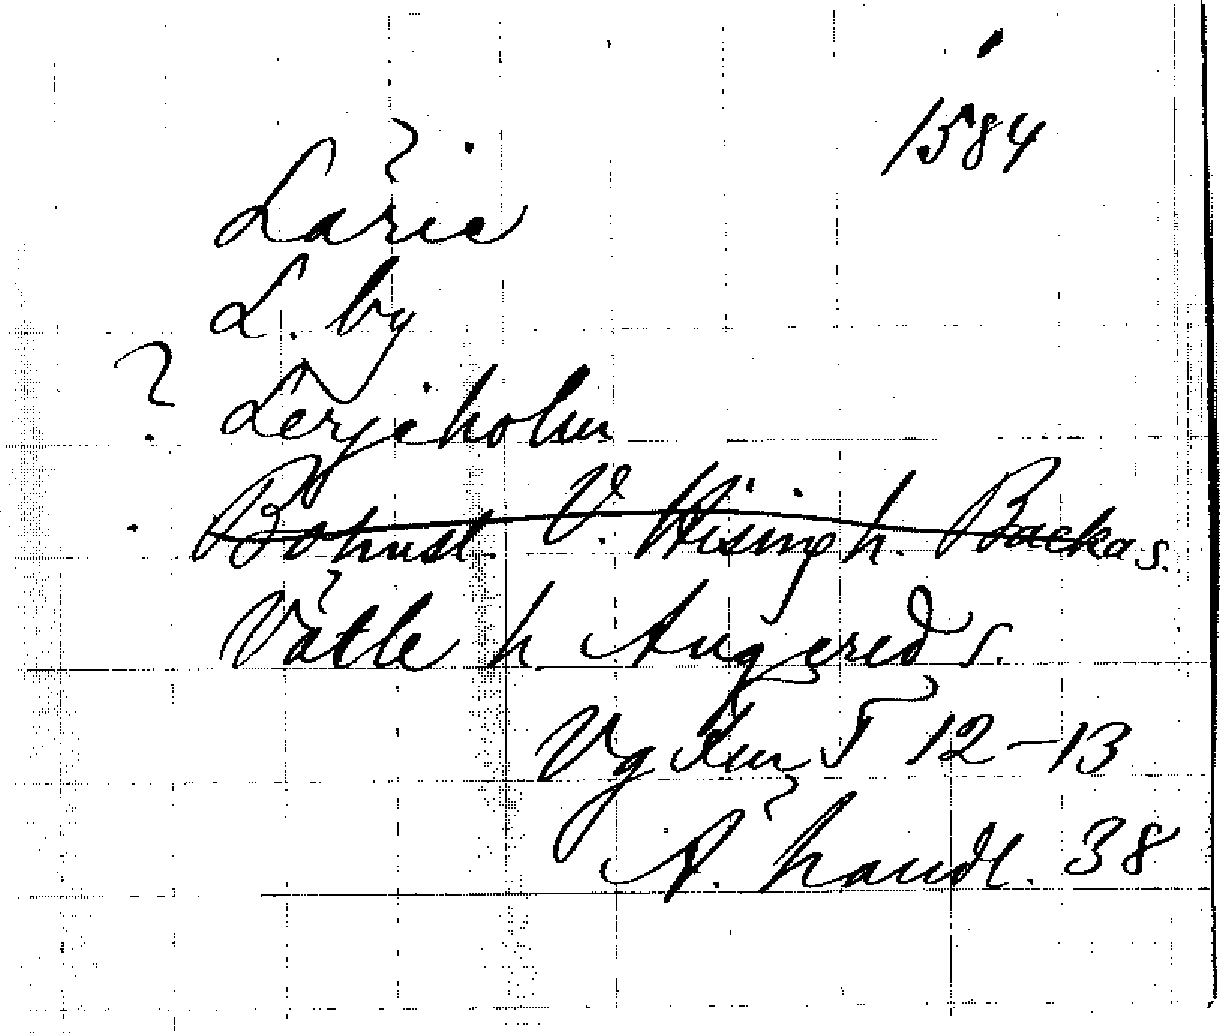 1584
Lärie
L. by
? Lerjeholm
Bohusl. V. Hisings h. Backa s.
Vätle h. Angered s.
Vg 12-13
A. handl. 38